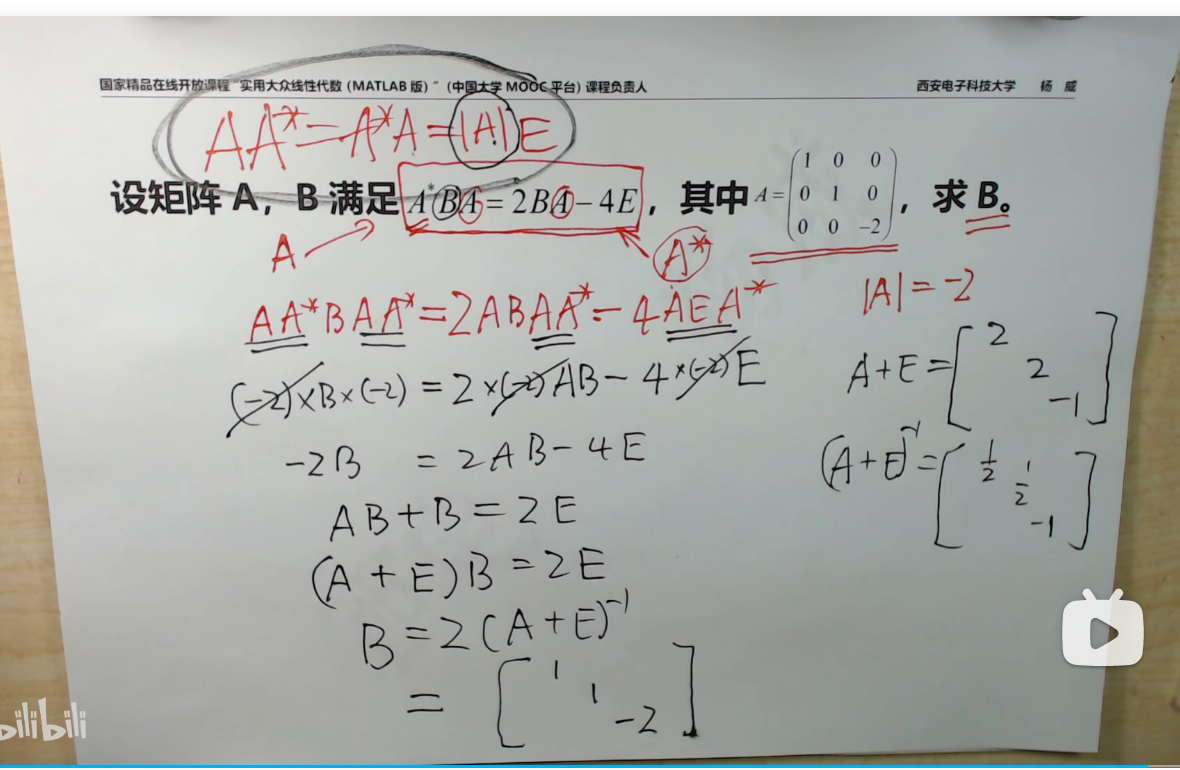 国家精品在线开放课程“实用大众线性代数（MATLAB 版）”（中国大学 MOOC 平台）课程负责人 西安电子科技大学 杨 威
AA* = A*A = |A|E
设矩阵 A，B 满足 A*BA = 2BA − 4E，其中 A = (1 0 0
0 1 0
0 0 −2)，求 B。
A A*
AA*BAA* = 2ABAA* − 4AEA* |A| = −2
(−2)×B×(−2) = 2×(−2)AB − 4×(−2)E
A+E = [2
2
−1]
−2B = 2AB − 4E
(A+E)⁻¹ = [1/2
1/2
−1]
AB + B = 2E
(A + E)B = 2E
B = 2(A+E)⁻¹
= [1
1
−2]
bilibili